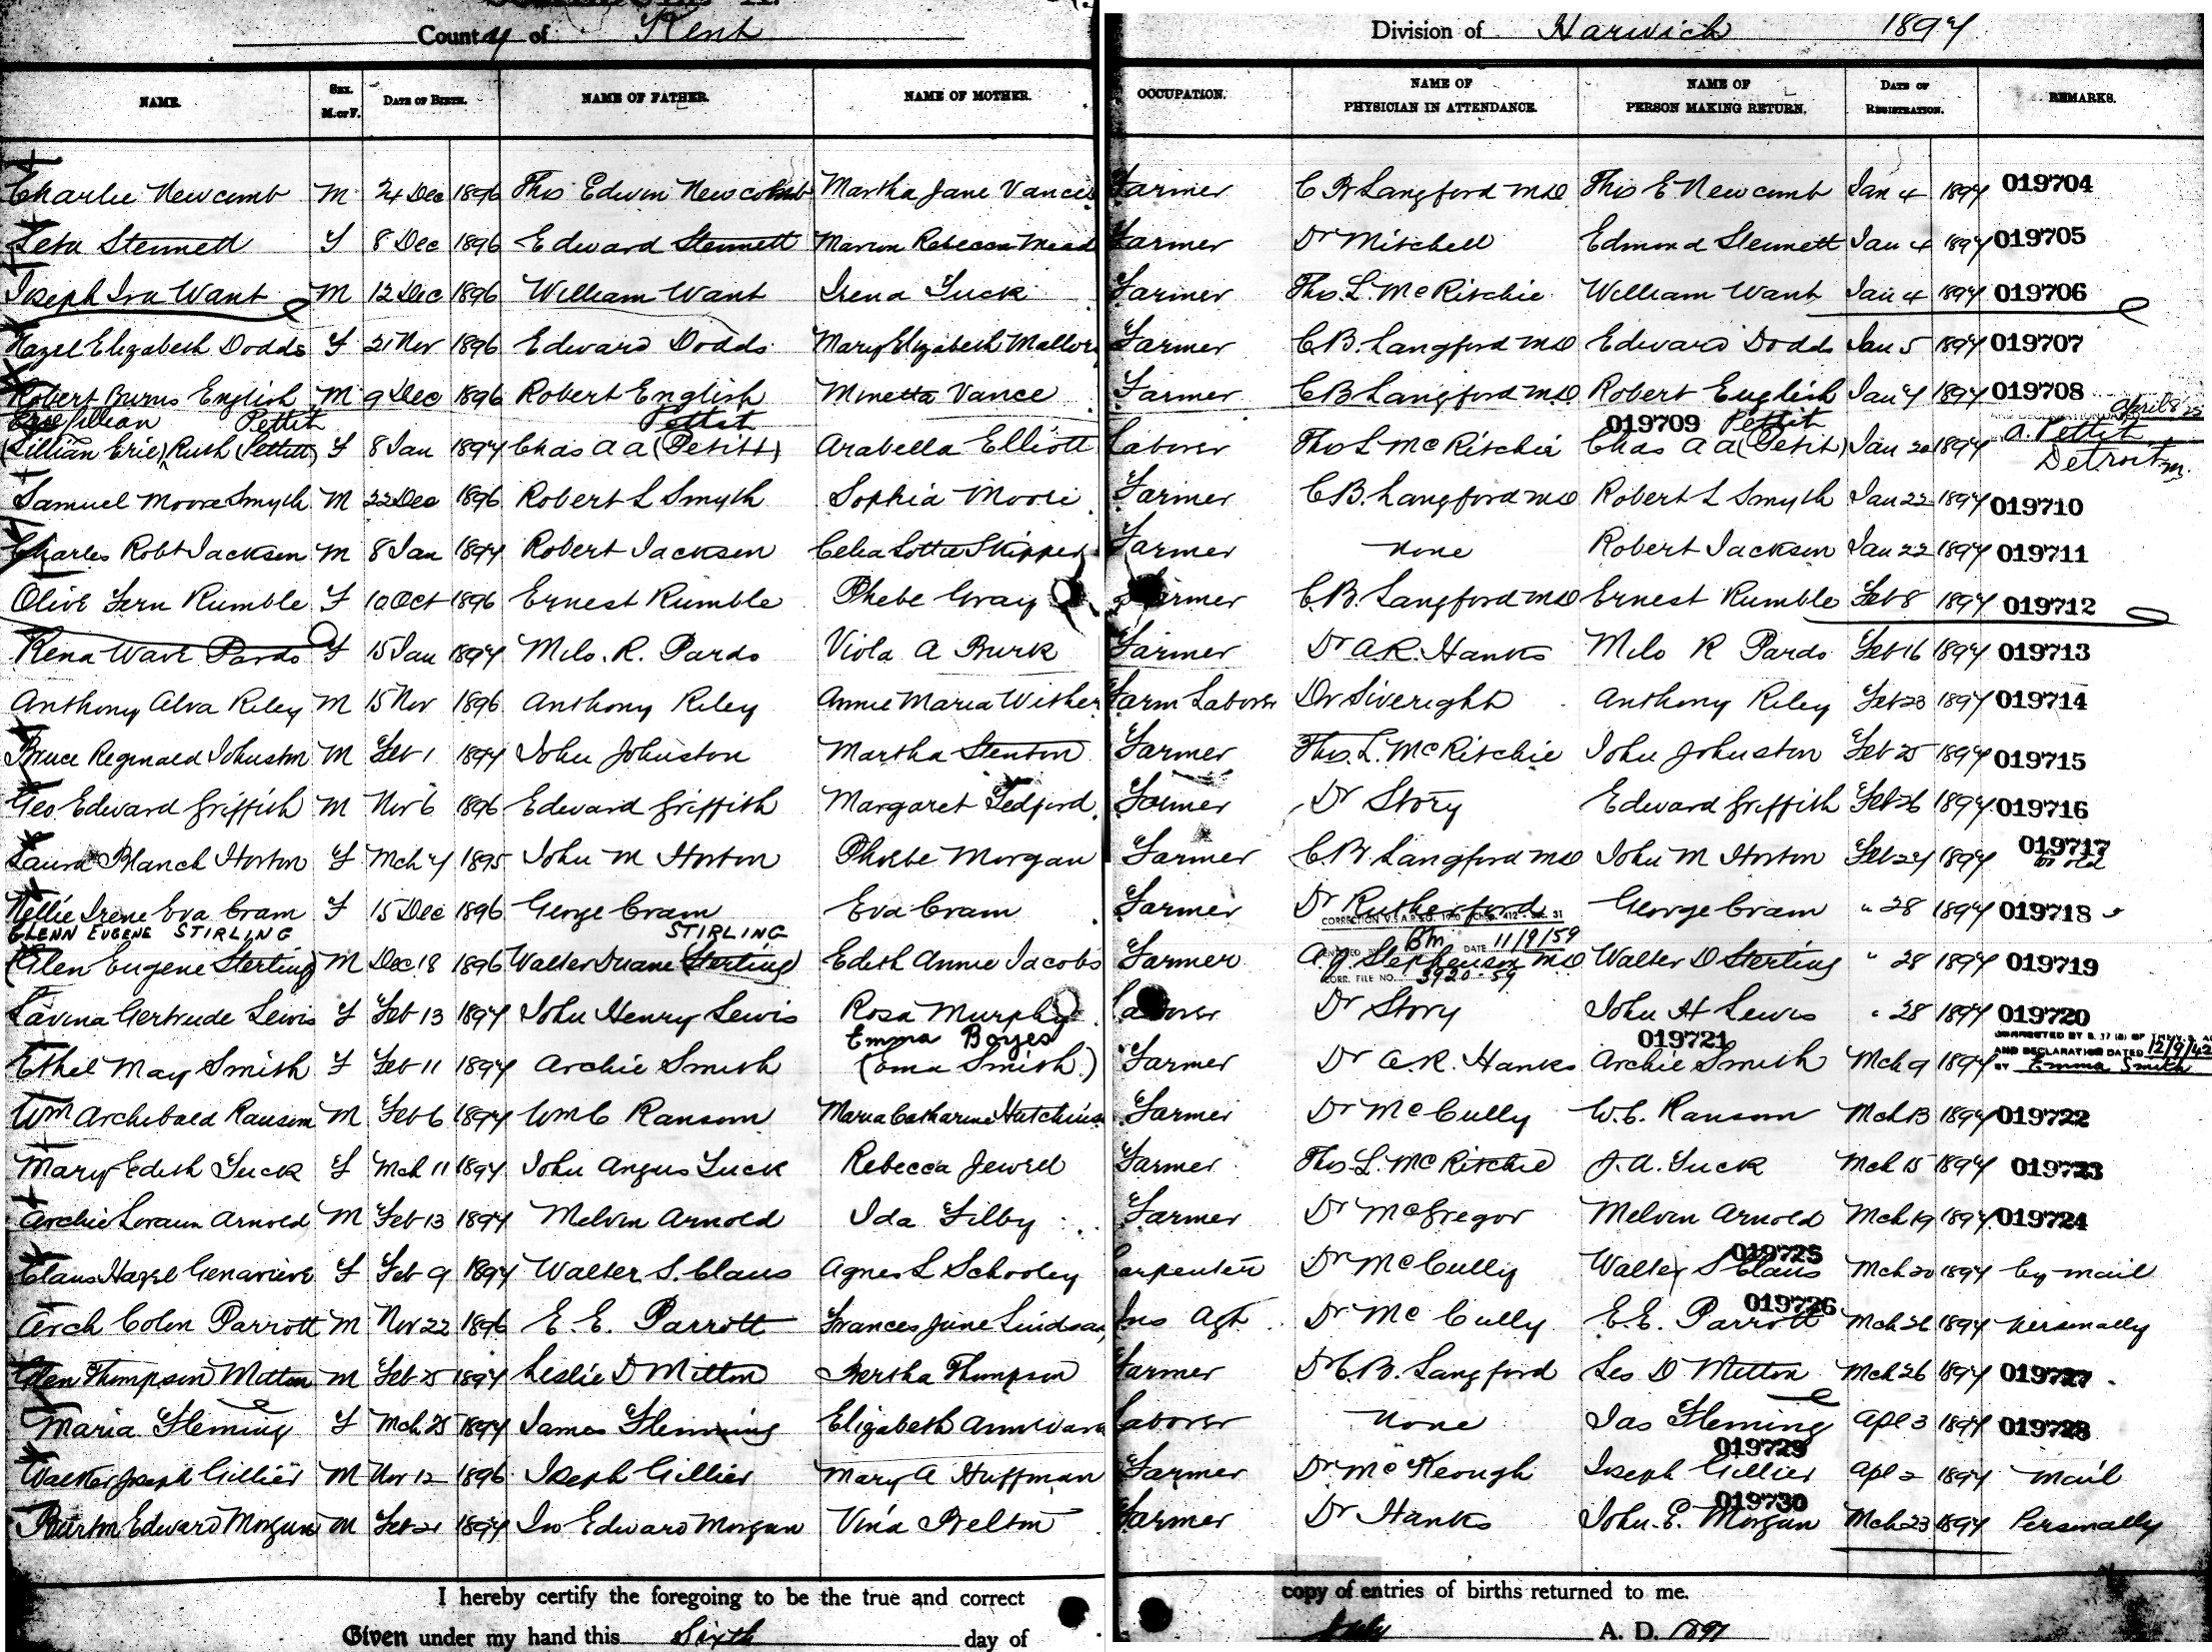 County of Kent Division of Harwich 1897
NAME. SEX. M. or F. DATE OF BIRTH. NAME OF FATHER. NAME OF MOTHER. OCCUPATION. NAME OF PHYSICIAN IN ATTENDANCE. NAME OF PERSON MAKING RETURN. DATE OF REGISTRATION. REMARKS.
Charlie Newcomb M 24 Dec 1896 Thos Edwin Newcomb Martha Jane Vance Farmer C B Langford MD Thos E Newcomb Jan 4 1897 019704
Leta Stennett F 8 Dec 1896 Edward Stennett Marion Rebecca Mead Farmer Dr Mitchell Edmond Stennett Jan 4 1897 019705
Joseph Ira Want M 12 Dec 1896 William Want Irena Tuck Farmer Thos. L. McRitchie William Want Jan 4 1897 019706
Hazel Elizabeth Dodds F 21 Nov 1896 Edward Dodds Mary Elizabeth Mallory Farmer C.B. Langford MD Edward Dodds Jan 5 1897 019707
Robert Burns English M 9 Dec 1896 Robert English Minetta Vance Farmer C B Langford MD Robert English Jan 7 1897 019708
Lillian Pettit Pettit 019709 Pettit April 8
(Lillian Erie) Ruth (Pettitt) F 8 Jan 1897 Chas A A (Petitt) Arabella Elliott Laborer Thos L McRitchie Chas A A (Petitt) Jan 20 1897 A. Pettit
Detroit
Samuel Moore Smyth M 22 Dec 1896 Robert L Smyth Sophia Moore Farmer C.B. Langford MD Robert L Smyth Jan 22 1897 019710
Charles Robt Jackson M 8 Jan 1897 Robert Jackson Celia Lottie Skipper Farmer None Robert Jackson Jan 22 1897 019711
Olive Fern Rumble F 10 Oct 1896 Ernest Rumble Phebe Gray Farmer C.B. Langford MD Ernest Rumble Feb 8 1897 019712
Rena Wave Pardo F 15 Jan 1897 Milo. R. Pardo Viola A Burk Farmer Dr A.R. Hanks Milo R Pardo Feb 16 1897 019713
Anthony Alva Riley M 15 Nov 1896 Anthony Riley Annie Maria Wither Farm Laborer Dr Siveright Anthony Riley Feb 23 1897 019714
Bruce Reginald Johnston M Feb 1 1897 John Johnston Martha Stenton Farmer Thos. L. McRitchie John Johnston Feb 25 1897 019715
Geo. Edward Griffith M Nov 6 1896 Edward Griffith Margaret Tedford Farmer Dr Story Edward Griffith Feb 26 1897 019716
Laura Blanch Horton F Mch 7 1895 John M Horton Phoebe Morgan Farmer C B Langford MD John M Horton Feb 27 1897 019717
Nellie Irene Eva Cram F 15 Dec 1896 George Cram Eva Cram Farmer Dr Rutherford George Cram " 28 1897 019718
GLENN EUGENE STIRLING STIRLING DATE 11/9/59
(Glen Eugene Sterling) M Dec 18 1896 Walter Duane (Sterling) Edith Annie Jacobs Farmer A. J. Stephenson MD Walter D Sterling " 28 1897 019719
CORR. FILE NO. 3920-59
Lavina Gertrude Lewis F Feb 13 1897 John Henry Lewis Rosa Murphy Laborer Dr Story John H Lewis " 28 1897 019720
Emma Boyes 019721 AND DECLARATION DATED 12/9/42
Ethel May Smith F Feb 11 1897 Archie Smith (Ema Smith) Farmer Dr A.R. Hanks Archie Smith Mch 9 1897 BY Emma Smith
Wm Archibald Ransom M Feb 6 1897 Wm C Ransom Maria Catharine Hutchins Farmer Dr McCully W.C. Ransom Mch 13 1897 019722
Mary Edith Tuck F Mch 11 1897 John Angus Tuck Rebecca Jewel Farmer Thos. L. McRitchie J. A. Tuck Mch 15 1897 019723
Archie Lorann Arnold M Feb 13 1897 Melvin Arnold Ida Filby Farmer Dr McGregor Melvin Arnold Mch 19 1897 019724
019725
Claus Hazel Genavieve F Feb 9 1897 Walter S. Claus Agnes L Schooley Carpenter Dr McCully Walter S Claus Mch 20 1897 by mail
019726
Arch Colin Parrott M Nov 22 1896 E. E. Parrott Frances June Lindsay Ins Agt Dr McCully E.E. Parrott Mch 26 1897 personally
Glen Thompson Mitton M Feb 25 1897 Leslie D Mitton Bertha Thompson Farmer Dr C.B. Langford Les D Mitton Mch 26 1897 019727
Maria Fleming F Mch 25 1897 James Fleming Elizabeth Ann Laborer None Jas Fleming Apl 3 1897 019728
019729
Walker Joseph Gillier M Nov 12 1896 Joseph Gillier Mary A Huffman Farmer Dr McKeough Joseph Gillier Apl 2 1897 mail
019730
Burton Edward Morgan M Feb 21 1897 Jno Edward Morgan Vina Belton Farmer Dr Hanks John. E. Morgan Mch 23 1897 Personally
I hereby certify the foregoing to be the true and correct copy of entries of births returned to me.
Given under my hand this Sixth day of July A. D. 1897